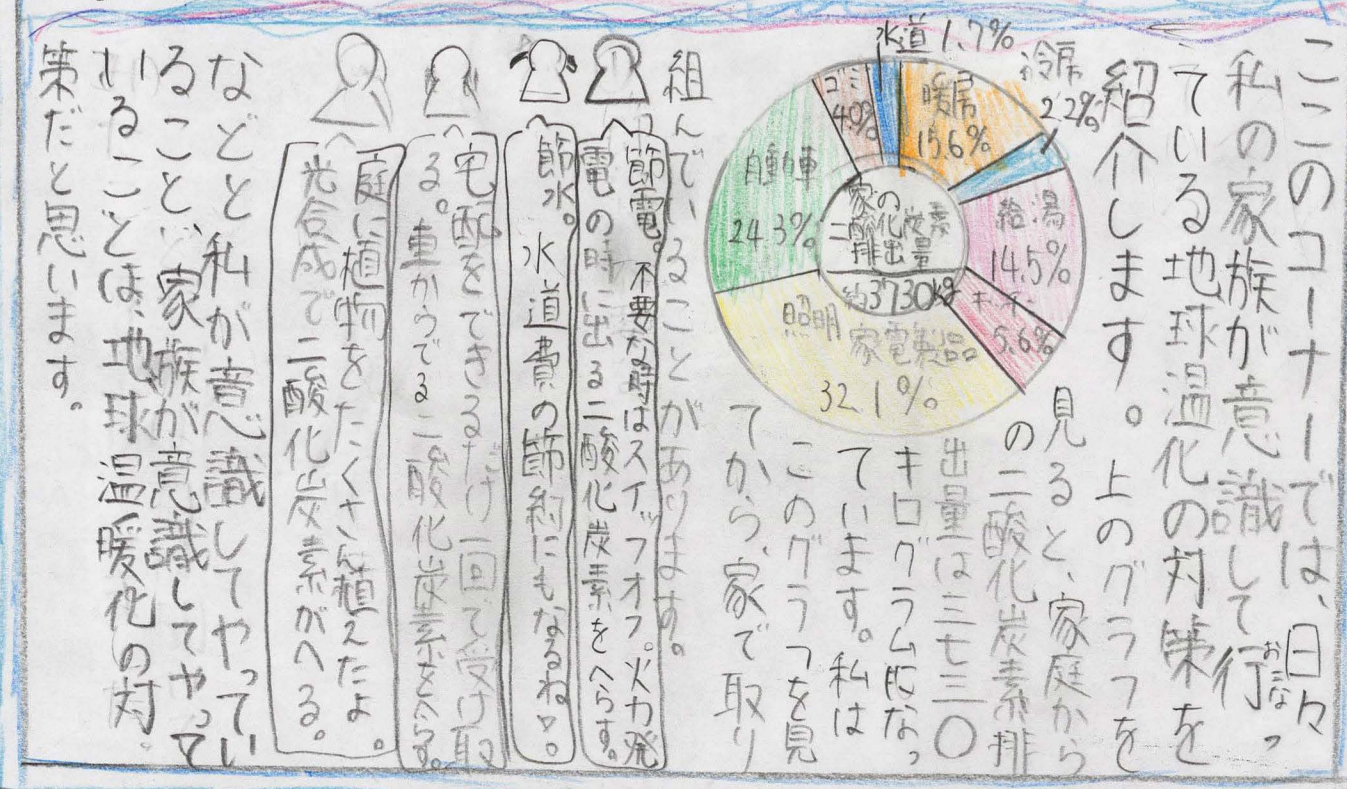 ここのコーナーでは、日々
私の家族が意識して行っ
おこな
ている地球温化の対策を
紹介します。上のグラフを
見ると、家庭から
の二酸化炭素排
出量は三七三〇
キログラムになっ
ています。私は
このグラフを見
てから、家で取り
組んでいることがあります。
水道1.7%
冷房
2.2%
暖房
15.6%
給湯
14.5%
キッチン
5.6%
照明
家電製品
32.1%
自動車
24.3%
ゴミ
4.0%
家の
二酸化炭素
排出量
約3730kg
節電。不要な時はスイッフオフ。火力発
電の時に出る二酸化炭素をへらす。
節水。
水道費の節約にもなるね。
宅配をできるだけ一回で受け取
る。車からでる二酸化炭素をへらす。
庭に植物をたくさん植えたよ。
光合成で二酸化炭素がへる。
などと私が意識してやってい
ること、家族が意識してやって
いることは、地球温暖化の対
策だと思います。